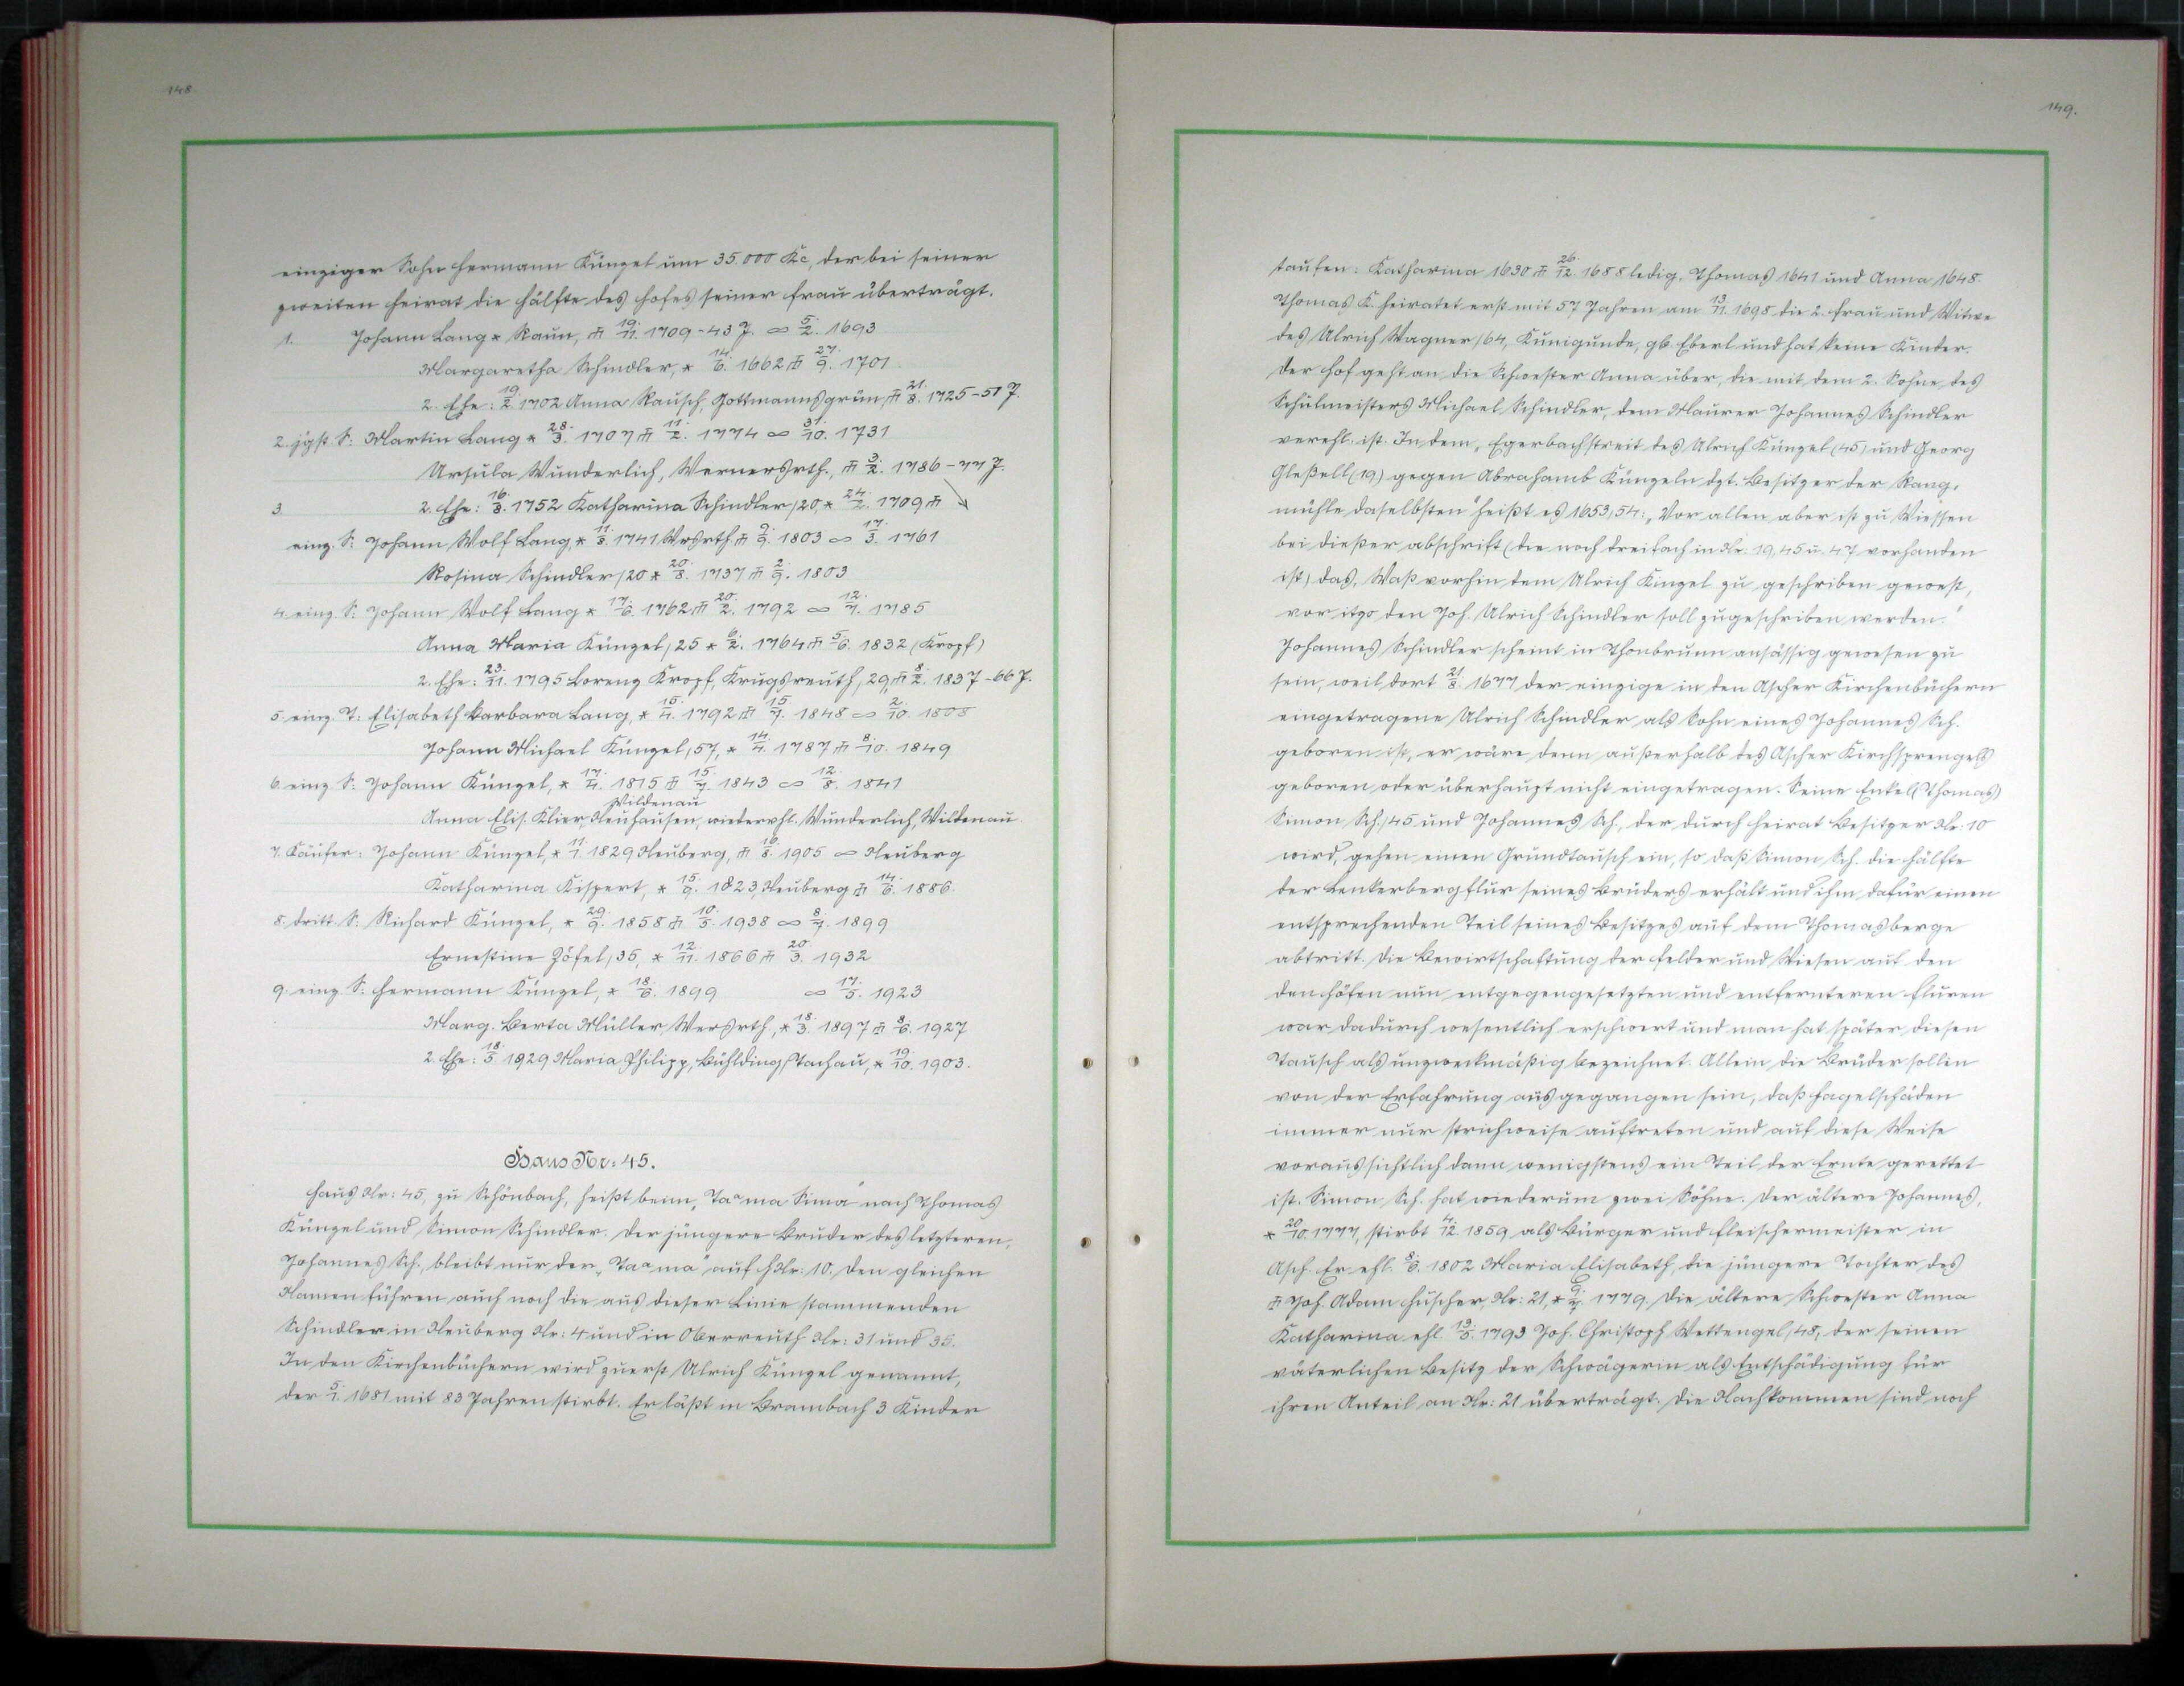 148.
einziger Sohn Hermann Künzel um 35.000 Kc, der bei seiner
zweiten Heirat die Hälfte des Hofes seiner Frau überträgt.
1. Johann Lang * Raun, 19./11. 1709-43 J. ∞ 5./2. 1693
Margaretha Schindler, * 14./6. 1662 27./9. 1701
2. Ehe: 19./2. 1702 Anna Rausch, Gottmannsgrün, 21./8. 1725-51 J.
2. jgst S: Martin Lang * 28./3. 1707 11./2. 1774 ∞ 31./10. 1731
Ursula Wunderlich, Wernersrth., 3./2. 1786-77 J.
3. 2. Ehe: 16./8. 1752 Katharina Schindler/20, * 24./2. 1709
einz. S: Johann Wolf Lang, * 11./8. 1741 Wrsrth 2./9. 1803 ∞ 17./3. 1761
Rosina Schindler/20 * 20./8. 1737 2./9. 1803
4. einz. S: Johann Wolf Lang * 17./6. 1762 20./2. 1792 ∞ 12./7. 1785
Anna Maria Künzel/25 * 6./2. 1764 5./6. 1832 (Kropf)
2. Ehe: 23./11. 1795 Lorenz Kropf, Krugsreuth, 29, 8./2. 1837-66 J.
5. einz. T: Elisabeth Barbara Lang, * 15./4. 1792 15./7. 1848 ∞ 2./10. 1808
Johann Michael Künzel/57, * 14./4. 1787 8./10. 1849
6. einz S: Johann Künzel, * 17./4. 1815 15./7. 1843 ∞ 12./8. 1841
Wildenau
Anna Elis. Klier, Neuhausen, wiedervhl. Wunderlich, Wildenau
7. Käufer: Johann Künzel, * 11./1. 1829 Neuberg, 16./8. 1905 ∞ Neuberg
Katharina Kispert, * 15./9. 1823, Neuberg 14./6. 1886.
8. dritt S: Richard Künzel, * 29./9. 1858 10./5. 1938 ∞ 8./7. 1899
Ernestine Zöfel/35, * 12./11. 1866 20./3. 1932
9. einz S: Hermann Künzel, * 18./6. 1899 ∞ 17./5. 1923
Marg. Berta Müller, Wersrth, * 18./3. 1897 8./6. 1927
2. Ehe: 18./5. 1929 Maria Philipp, Tachau, * 19./10. 1903.
Haus Nr: 45.
Haus Nr: 45, zu Schönbach, heißt beim „Taama Sima" nach Thomas
Künzel und Simon Schindler. Der jüngere Bruder des letzteren,
Johannes Sch., bleibt nur der „Taama" auf HNr: 10. Den gleichen
Namen führen auch noch die aus dieser Linie stammenden
Schindler in Neuberg Nr: 4 und in Oberreuth Nr: 31 und 35.
In den Kirchenbüchern wird zuerst Ulrich Künzel genannt,
der 5./1. 1681 mit 83 Jahren stirbt. Er läßt in Brambach 3 Kinder
149.
taufen: Katharina 1630 26./12. 1688 ledig, Thomas 1641 und Anna 1648.
Thomas K. heiratet erst mit 57 Jahren am 13./11. 1698 die 2. Frau und Witwe
des Ulrich Wagner/64, Kunigunde, gb. Eberl und hat keine Kinder.
Der Hof geht an die Schwester Anna über, die mit dem 2. Sohne des
Schulmeisters Michael Schindler, dem Maurer Johannes Schindler
verehl. ist. In dem „Egerbachstreit des Ulrich Künzel (45) und Georg
Gleßell (19) gegen Abrahamb Künzeln dzt. Besitzer der Rang,
mühle daselbsten" heißt es 1653/54: „Vor allen aber ist zu Wiessen
bei dießer abschrift (die noch dreifach in Nr. 19, 45 u. 47 vorhanden
ist) das, Waß vorhin dem Ulrich Kinzel zu geschriben gewest,
vor itzo den Joh. Ulrich Schindler soll zugeschriben werden."
Johannes Schindler scheint in Thonbrunn ansässig gewesen zu
sein, weil dort 21./8. 1677 der einzige in den Ascher Kirchenbüchern
eingetragene Ulrich Schindler als Sohn eines Johannes Sch.
geboren ist, er wäre denn außerhalb des Ascher Kirchsprengels
geboren oder überhaupt nicht eingetragen. Seine Enkel (Thomas)
Simon Sch./45 und Johannes Sch., der durch Heirat Besitzer Nr: 10
wird, gehen einen Grundtausch ein, so daß Simon Sch. die Hälfte
der Lenkerbergflur seines Bruders erhält und ihm dafür einen
entsprechenden Teil seines Besitzes auf dem Thomasberge
abtritt. Die Bewirtschaftung der Felder und Wiesen auf den
den Höfen nun entgegengesetzten und entfernteren Fluren
war dadurch wesentlich erschwert und man hat später diesen
Tausch als unzweckmäßig bezeichnet. Allein die Brüder sollen
von der Erfahrung ausgegangen sein, daß Hagelschäden
immer nur strichweise auftreten und auf diese Weise
voraussichtlich dann wenigstens ein Teil der Ernte gerettet
ist. Simon Sch. hat wiederum zwei Söhne. Der ältere Johannes,
* 20./10. 1777, stirbt 4./12. 1859 als Bürger und Fleischermeister in
Asch. Er ehl. 8./6. 1802 Maria Elisabeth, die jüngere Tochter des
Joh. Adam Huscher, Nr: 21, * 9./7. 1779. Die ältere Schwester Anna
Katharina ehl. 13./5. 1793 Joh. Christoph Wettengel/48, der seinen
väterlichen Besitz der Schwägerin als Entschädigung für
ihren Anteil an Nr: 21 überträgt. Die Nachkommen sind noch